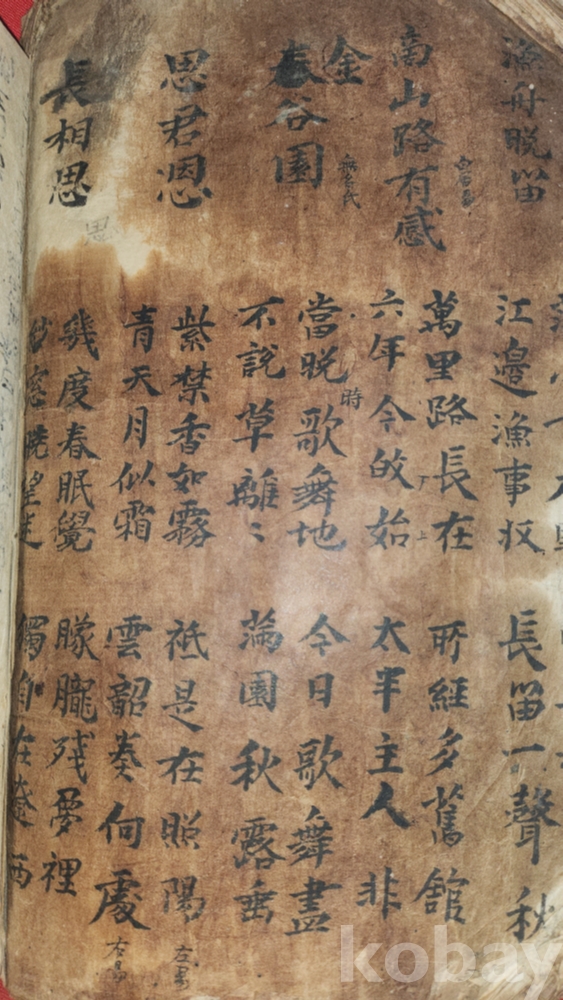 漁舟晚笛
江邊漁事収
長笛一聲秋
商山路有感
白居易
萬里路長在
所經多舊館
六年今皈始
下
上
太半主人非
金谷園
無名氏
當晚歌舞地
時
今日歌舞盡
不說草離〻
滿園秋露垂
思君恩
紫禁香如霧
祗是在昭陽
青天月似霜
雲韶奏何處
長相思
思
幾度春眠覺
朦朧殘夢裡
紗窓曉望迷
自在遼西
kobay